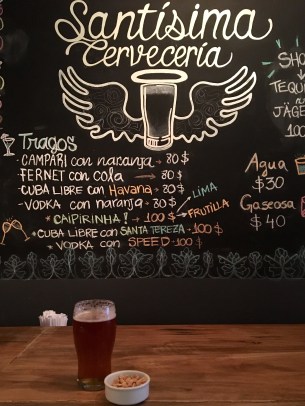 Santísima
Cervecería
Tragos
- CAMPARI con naranja → 80 $
- FERNET con cola → 80 $
- CUBA LIBRE con Havana → 80 $
- VODKA con naranja → 80 $
* CAIPIRINHA! → 100 $
LIMA
FRUTILLA
* CUBA LIBRE con SANTA TEREZA - 100 $
* VODKA con SPEED - 100 $
SHO
TEQU
JÄGE
100
Agua
$30
Gaseosa
$40